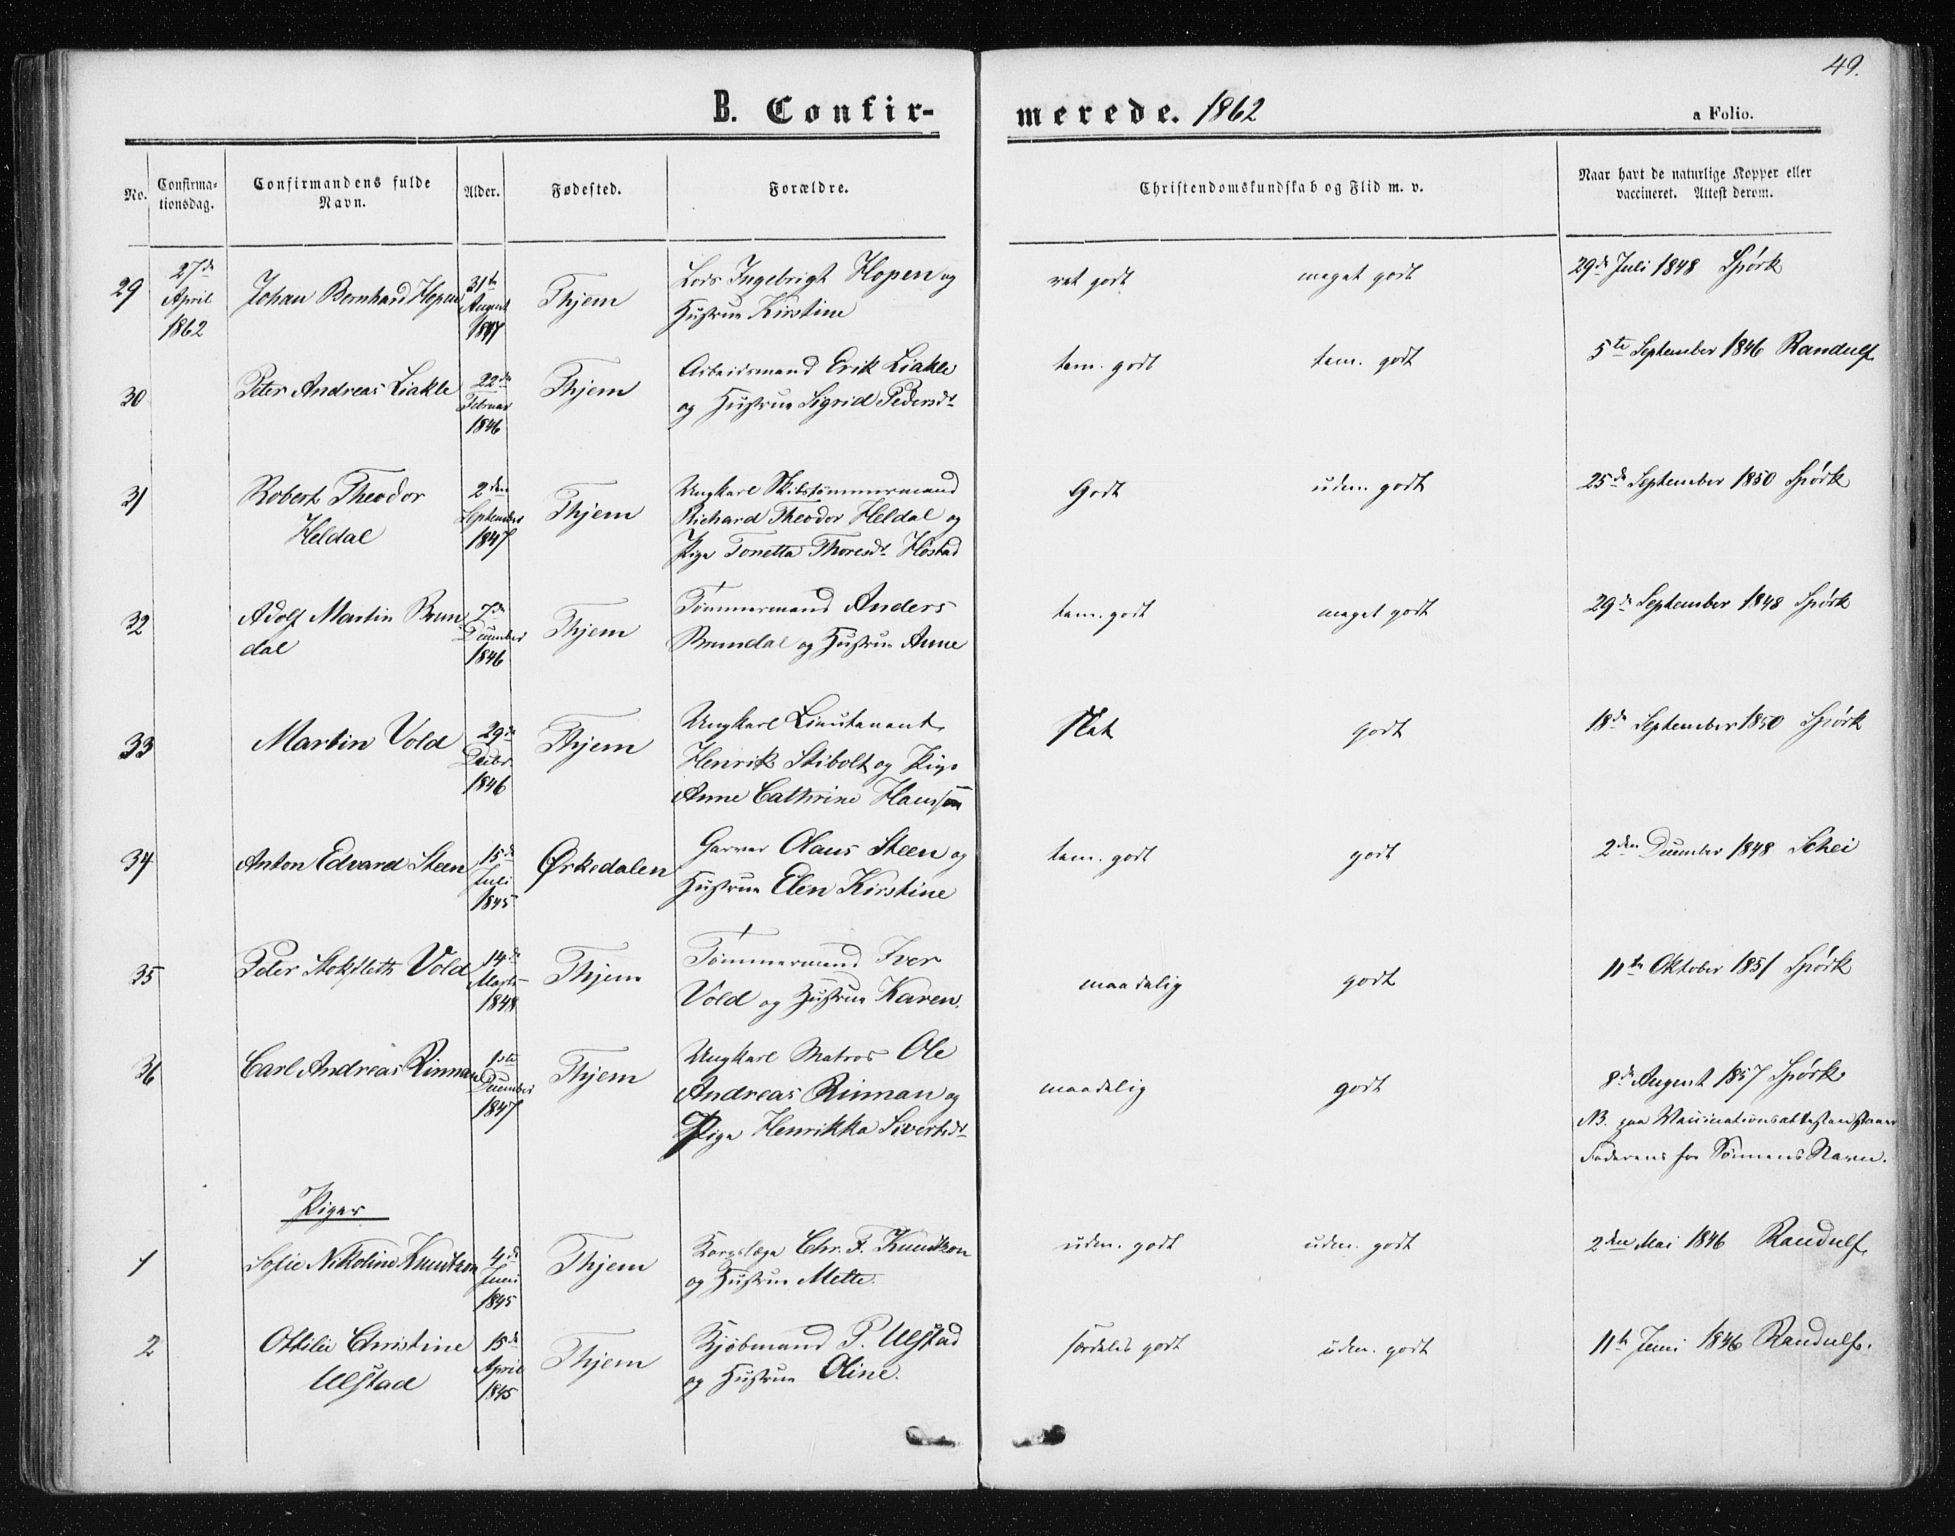 49.
B. Confirmerede. 1862
a Folio.
No.
Confirmationsdag.
Confirmandens fulde Navn.
Alder.
Fødested.
Forældre.
Christendomskundskab og Flid m. v.
Naar havt de naturlige Kopper eller vaccineret. Attest derom.
29
27de April 1862
Johan Bernhard Hopen
31te August 1847
Thjem
Lods Ingebrigt Hopen og
Hustrue Kirstine
ret godt
meget godt
29de Juli 1848 Spörk
30
Peter Andreas Liakle
22de Februar 1846
Thjem
Arbeidsmand Erik Liakle
og Hustrue Sigrid Pedersdt
tem. godt
tem. godt
5te September 1846 Randulf
31
Robert Theodor
Heldal
2den September 1847
Thjem
Ungkarl Skibstømmermand
Richard Theodor Heldal og
Pige Tonetta Thoresdt Höstad
Godt
udm. godt
25de September 1850 Spörk
32
Adolf Martin Brun
dal
7de December 1846
Thjem
Tømmermand Anders
Brundal og Hustrue Anne
tem. godt
meget godt
29de September 1848 Spörk
33
Martin Vold
29de Decbr 1846
Thjem
Ungkarl Lieutenant
Henrik Stibolt og Pige
Anne Cathrine Hanssen
slet
godt
18de September 1850 Spörk
34
Anton Edvard Steen
15de Juli 1845
Ørkedalen
Garver Olaus Steen og
Hustrue Elen Kirstine
tem. godt
godt
2den December 1848 Schei
35
Peter Stokfleth Vold
14de Marts 1848
Thjem
Tømmermand Iver
Vold og Hustrue Karen.
maadelig
godt
11te Oktober 1851 Spörk
36
Carl Andreas Rinnan
1ste December 1847
Thjem
Ungkarl Matros Ole
Andreas Rinnan og
Pige Henrikka Sivertsdt
maadelig
godt
8de August 1857 Spörk
NB. paa Vaccinationsattesten staaer
Faderens for Sönnens Navn.
Piger
1
Sofie Nikoline Knudtzon
4de Juni 1845
Thjem
Korpslæge Chr. F. Knudtzon
og Hustrue Mette.
udm. godt
udm. godt
2den Mai 1846 Randulf
2
Ottilie Christine
Ulstad
15de April 1845
Thjem
Kjøbmand P. Ulstad
og Hustrue Oline.
særdeles godt
udm. godt
11te Juni 1846 Randulf.